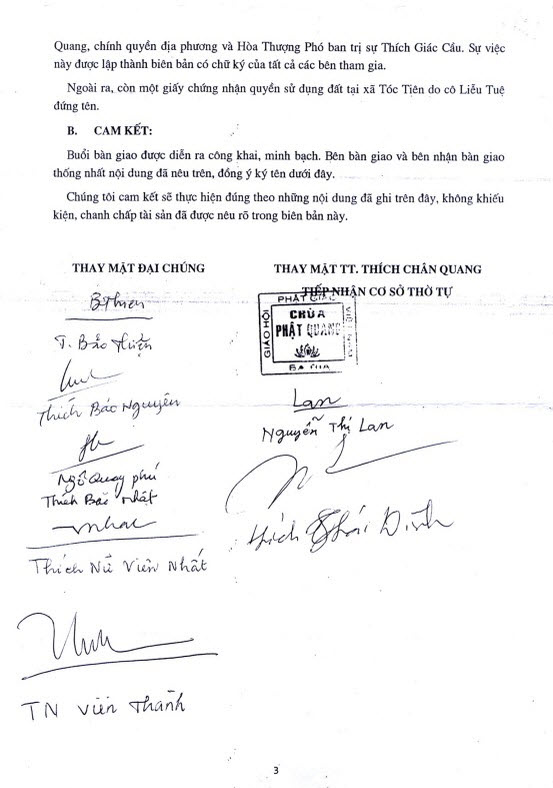 Quang, chính quyền địa phương và Hòa Thượng Phó ban trị sự Thích Giác Cầu. Sự việc
này được lập thành biên bản có chữ ký của tất cả các bên tham gia.
Ngoài ra, còn một giấy chứng nhận quyền sử dụng đất tại xã Tóc Tiên do cô Liễu Tuệ
đứng tên.
B. CAM KẾT:
Buổi bàn giao được diễn ra công khai, minh bạch. Bên bàn giao và bên nhận bàn giao
thống nhất nội dung đã nêu trên, đồng ý ký tên dưới đây.
Chúng tôi cam kết sẽ thực hiện đúng theo những nội dung đã ghi trên đây, không khiếu
kiện, chanh chấp tài sản đã được nêu rõ trong biên bản này.
THAY MẶT ĐẠI CHÚNG
BThien
T. Bảo Thiện
Thích Bảo Nguyên
Ngô Quang phú
Thích Bảo Nhật
Thích Nữ Viên Nhất
TN Viên Thanh
THAY MẶT TT. THÍCH CHÂN QUANG
TIẾP NHẬN CƠ SỞ THỜ TỰ
GIÁO HỘI
PHẬT GIÁO
VIỆT NAM
CHÙA
PHẬT QUANG
Lan
Nguyễn Thị Lan
Thích Dình
3